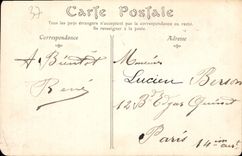 37
Carte Postale
Tous les pays étrangers n'acceptent pas la correspondance au recto.
Se renseigner à la poste.
Correspondance
Adresse
A Bientôt
René
Monsieur
Lucien Berson
12 Bd Edgar Quinet
Paris 14ième arr.